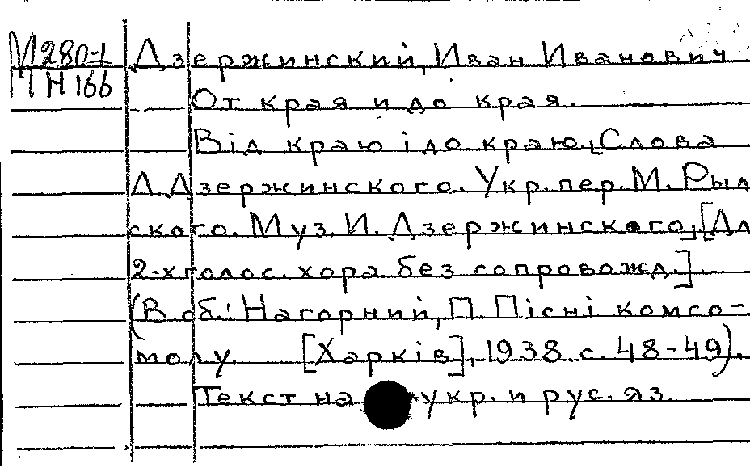 М280-1 Дзержинский, Иван Иванович
ТН166
От края и до края.
Від краю і до краю. [Слова
Л. Дзержинского. Укр. пер. М. Рыль
ского. Муз. И. Дзержинского]. [Дл
2-х голос. хора без сопровожд.]
(В сб.: Нагорний, П. Пісні комсо-
молу. [Харків], 1938. с. 48-49).
Текст на укр. и рус. яз.